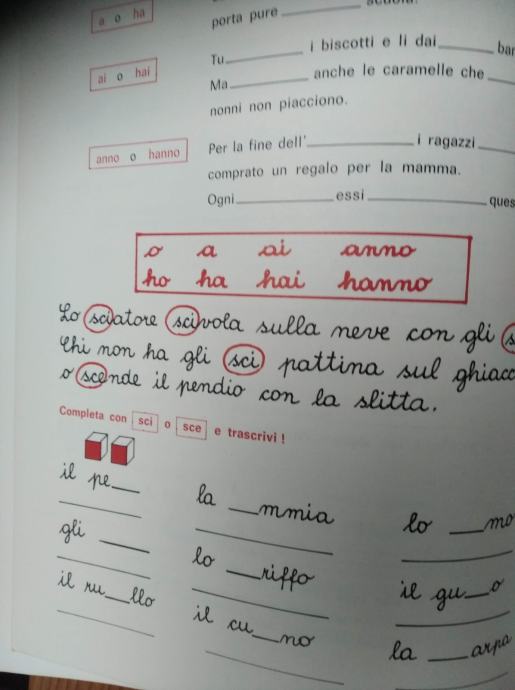 a o ha
porta pure ________ scuola.
ai o hai
Tu________ i biscotti e li dai________ bar
Ma________ anche le caramelle che ____
nonni non piacciono.
anno o hanno
Per la fine dell'________ i ragazzi ____
comprato un regalo per la mamma.
Ogni________ essi ________ ques
o a ai anno
ho ha hai hanno
Lo sciatore scivola sulla neve con gli s
Chi non ha gli sci pattina sul ghiacc
o scende il pendio con la slitta.
Completa con sci o sce e trascrivi !
il pe___ la ___mmia lo ___mo
gli ____ lo ___riffo il gu___o
il ru___llo il cu___no la ___arpa